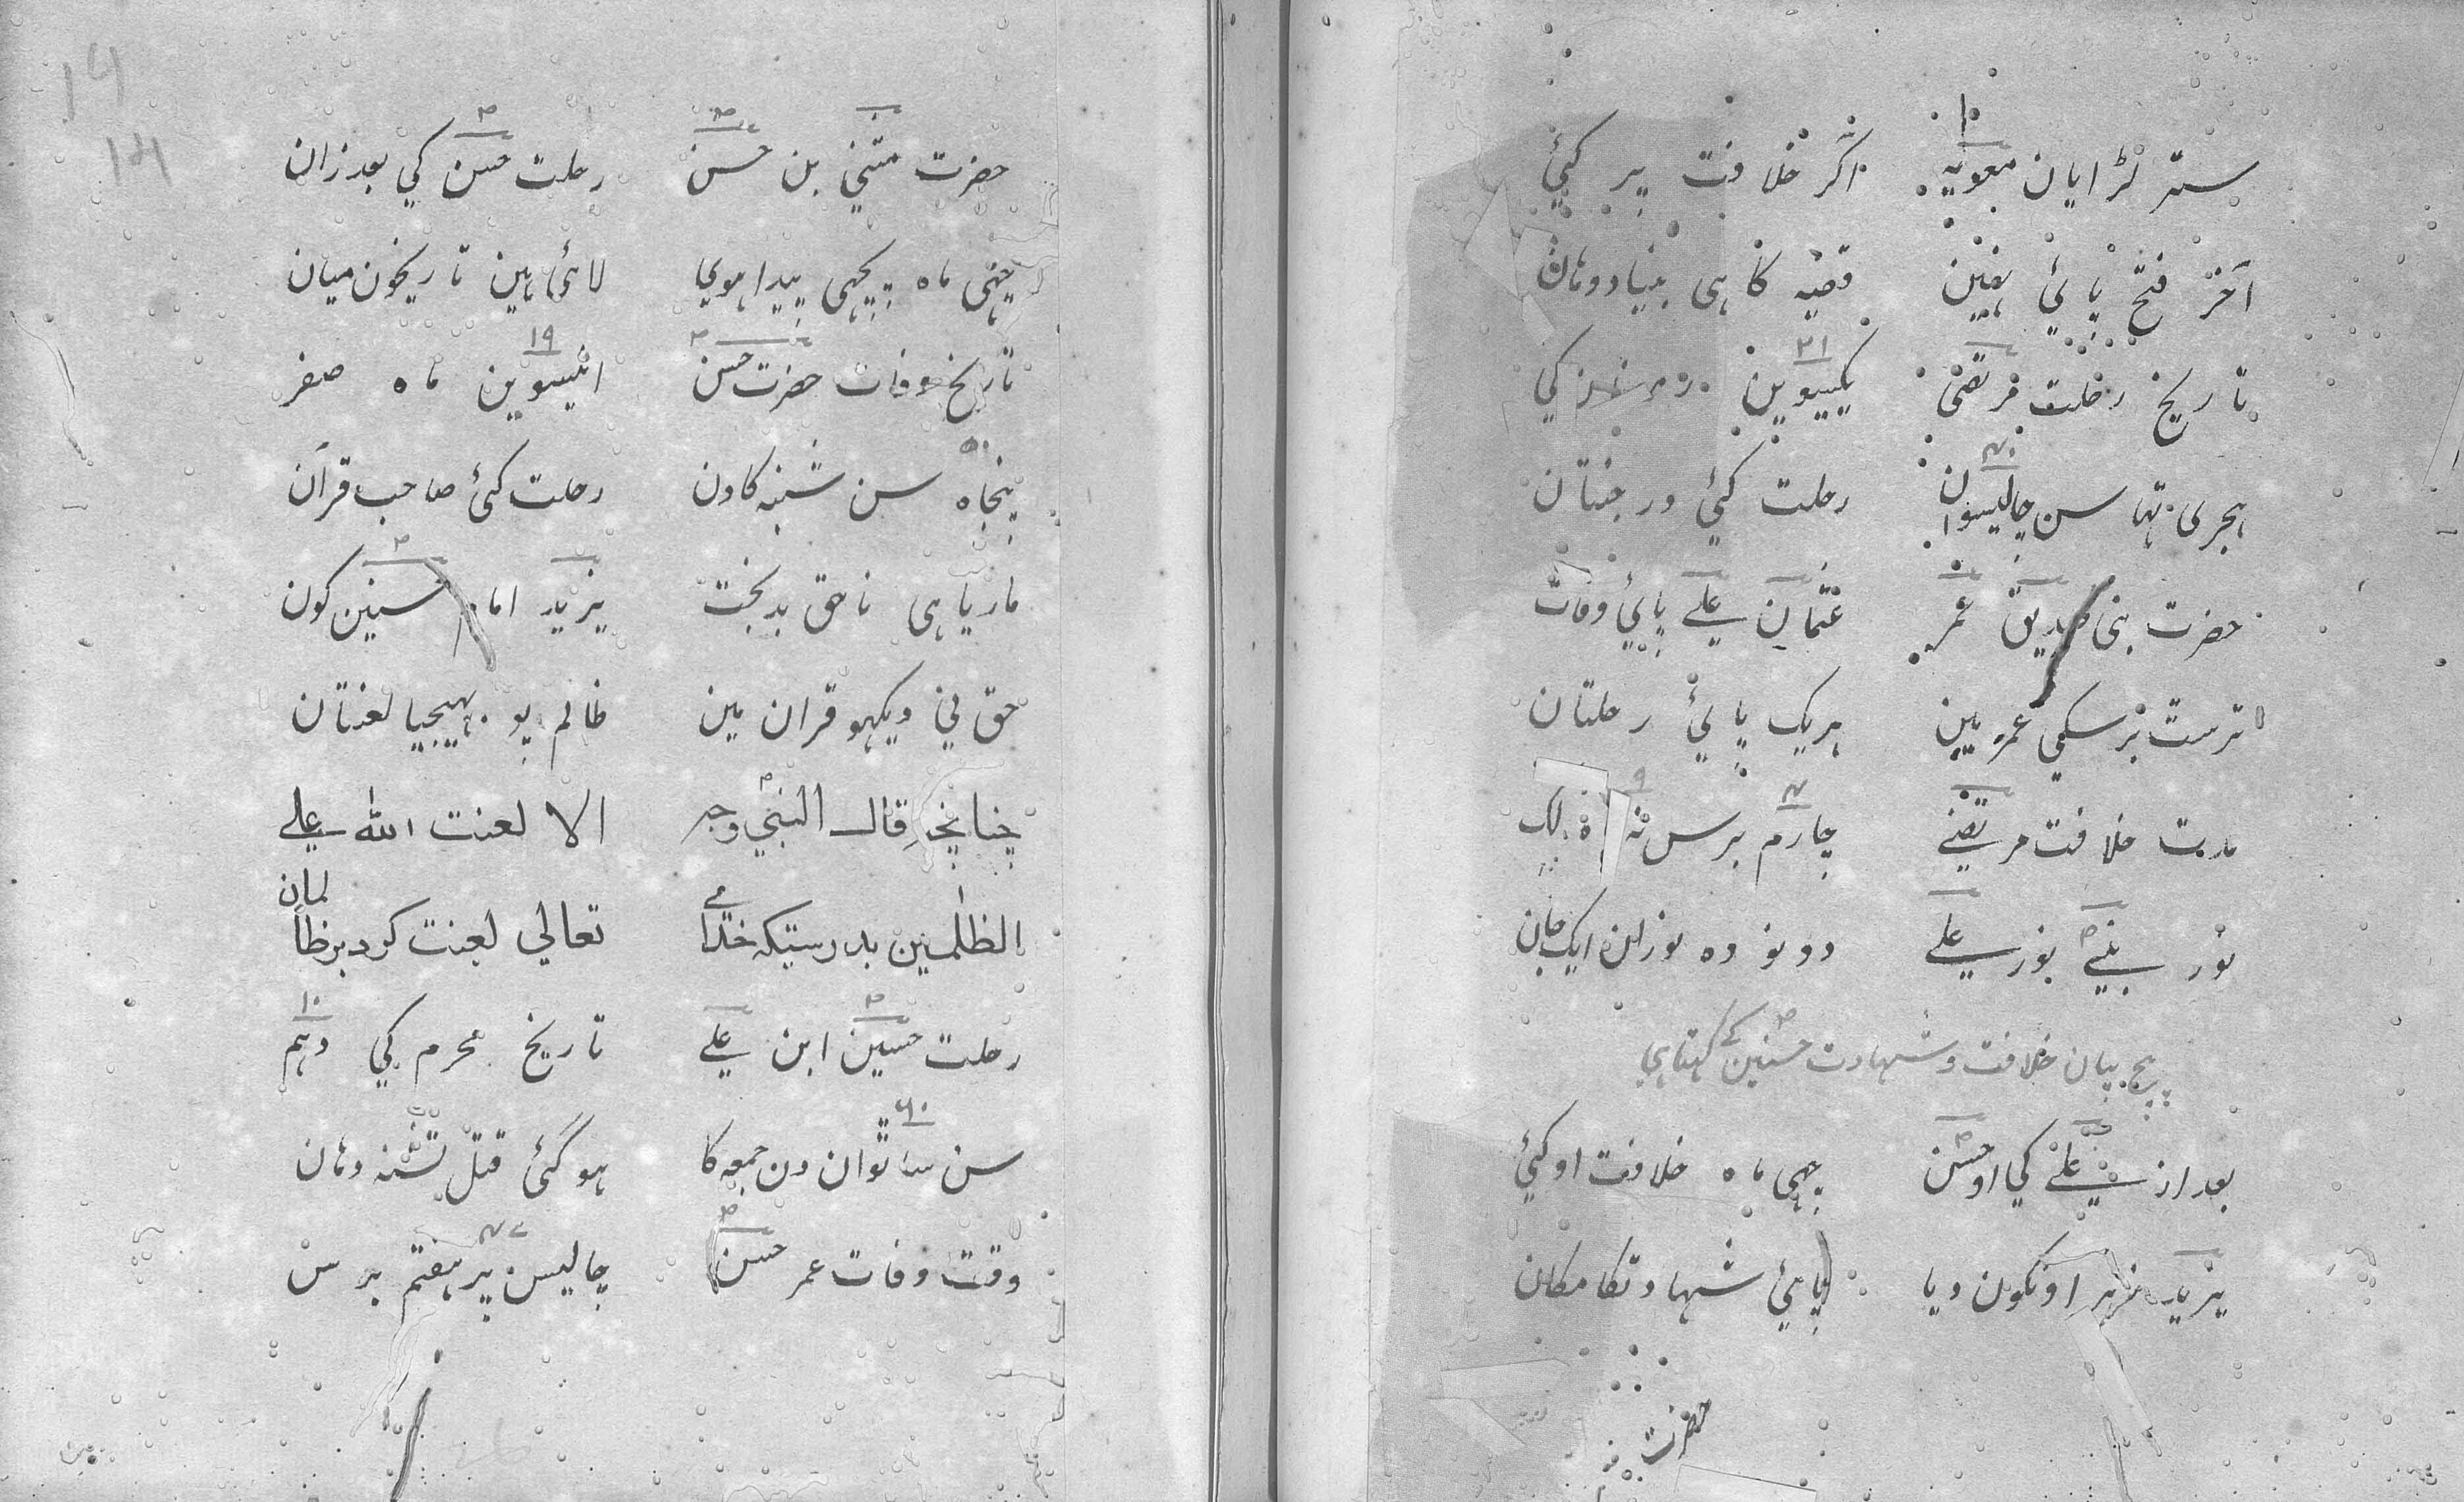 ستر لڑایان معویہ اگر خلافت پر کئی
۱۰
آخر فتح پائی یقین قصّہ کا ہی بنیاد وہان
تاریخ رحلت مرتضی یکیسوین
۲۱
ہجری تہا سن چالیسوان رحلت کئی در جنتان
۴۰
حضرت نبی صدیق عمر عثمان علی پائی وفات
ترست برسکی عمر مین ہریک پائی رحلتان
مدت خلافت مرتضی چارم برس نہ
۴ ۹
نور نبی نور علی دونو وہ نوران ایک جان
بیچ بیان خلافت و شہادت حسنین کے کہتا ہی
بعد از علی کی او حسن چہی ماہ خلافت او کئی
یزید زہر اونکون دیا پائی شہادتکا مکان
حضرت
۱۶
۱۴
حضرت مثنی بن حسن رحلت حسن کی بعد زان
چہٹی ماہ پیچہی پیدا ہوی لائی ہین تاریخون میان
تاریخ وفات حضرت حسن انیسوین ماہ صفر
۱۹
پنجاہ سن شنبہ کا دن رحلت کئی صاحب قرآن
۵۰
ماریا ہی ناحق بدبخت یزید امام حسنین کون
حق نی دیکہو قران مین ظالم پو بہیجیا لعنتان
چنانچہ قال النبی وجہ الا لعنت اللہ علی
الظلمین بدرستیکہ خدای تعالی لعنت کرد بر ظالمان
رحلت حسین ابن علی تاریخ محرم کی دہم
۱۰
سن ساتوان دن جمعہ کا ہو گئی قتل تشنہ دہان
۶۰
وقت وفات عمر حسن چالیس پر ہفتم برس
۴۷